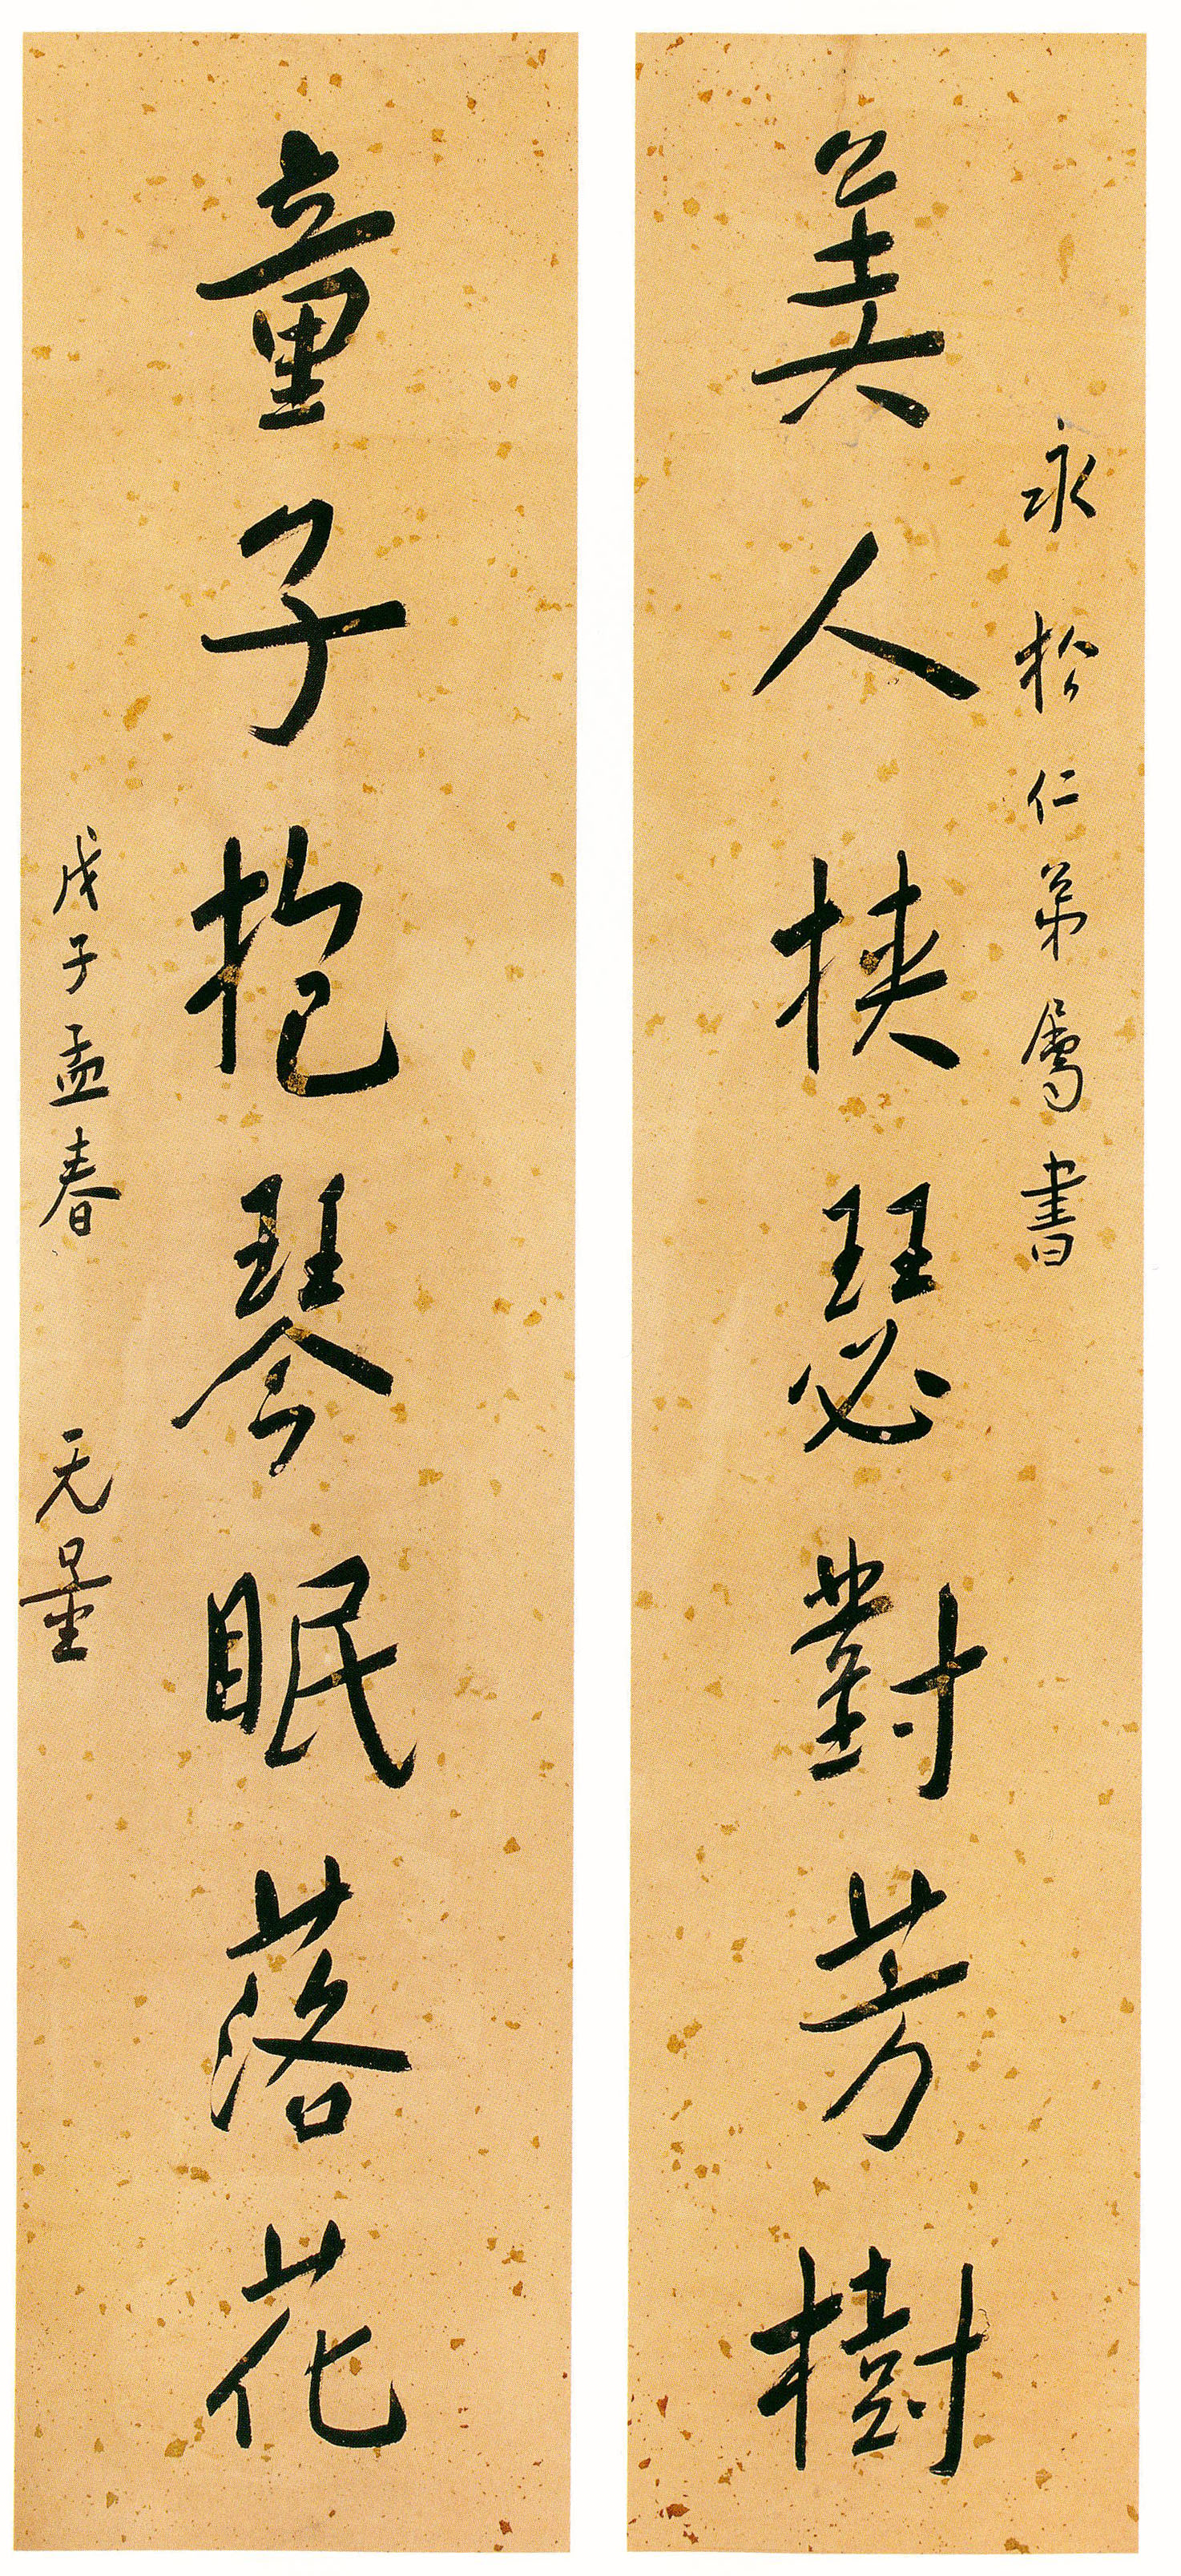 永松仁弟属書
美人挟瑟對芳樹
童子抱琴眠落花
戊子孟春 无量